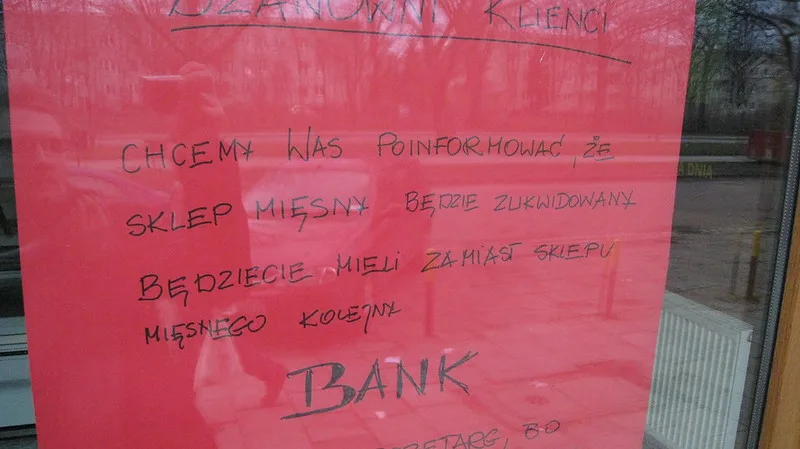 SZANOWNI KLIENCI
CHCEMY WAS POINFORMOWAĆ, ŻE
SKLEP MIĘSNY BĘDZIE ZLIKWIDOWANY
BĘDZIECIE MIELI ZAMIAST SKLEPU
MIĘSNEGO KOLEJNY
BANK
PRZETARG, BO
DNIA